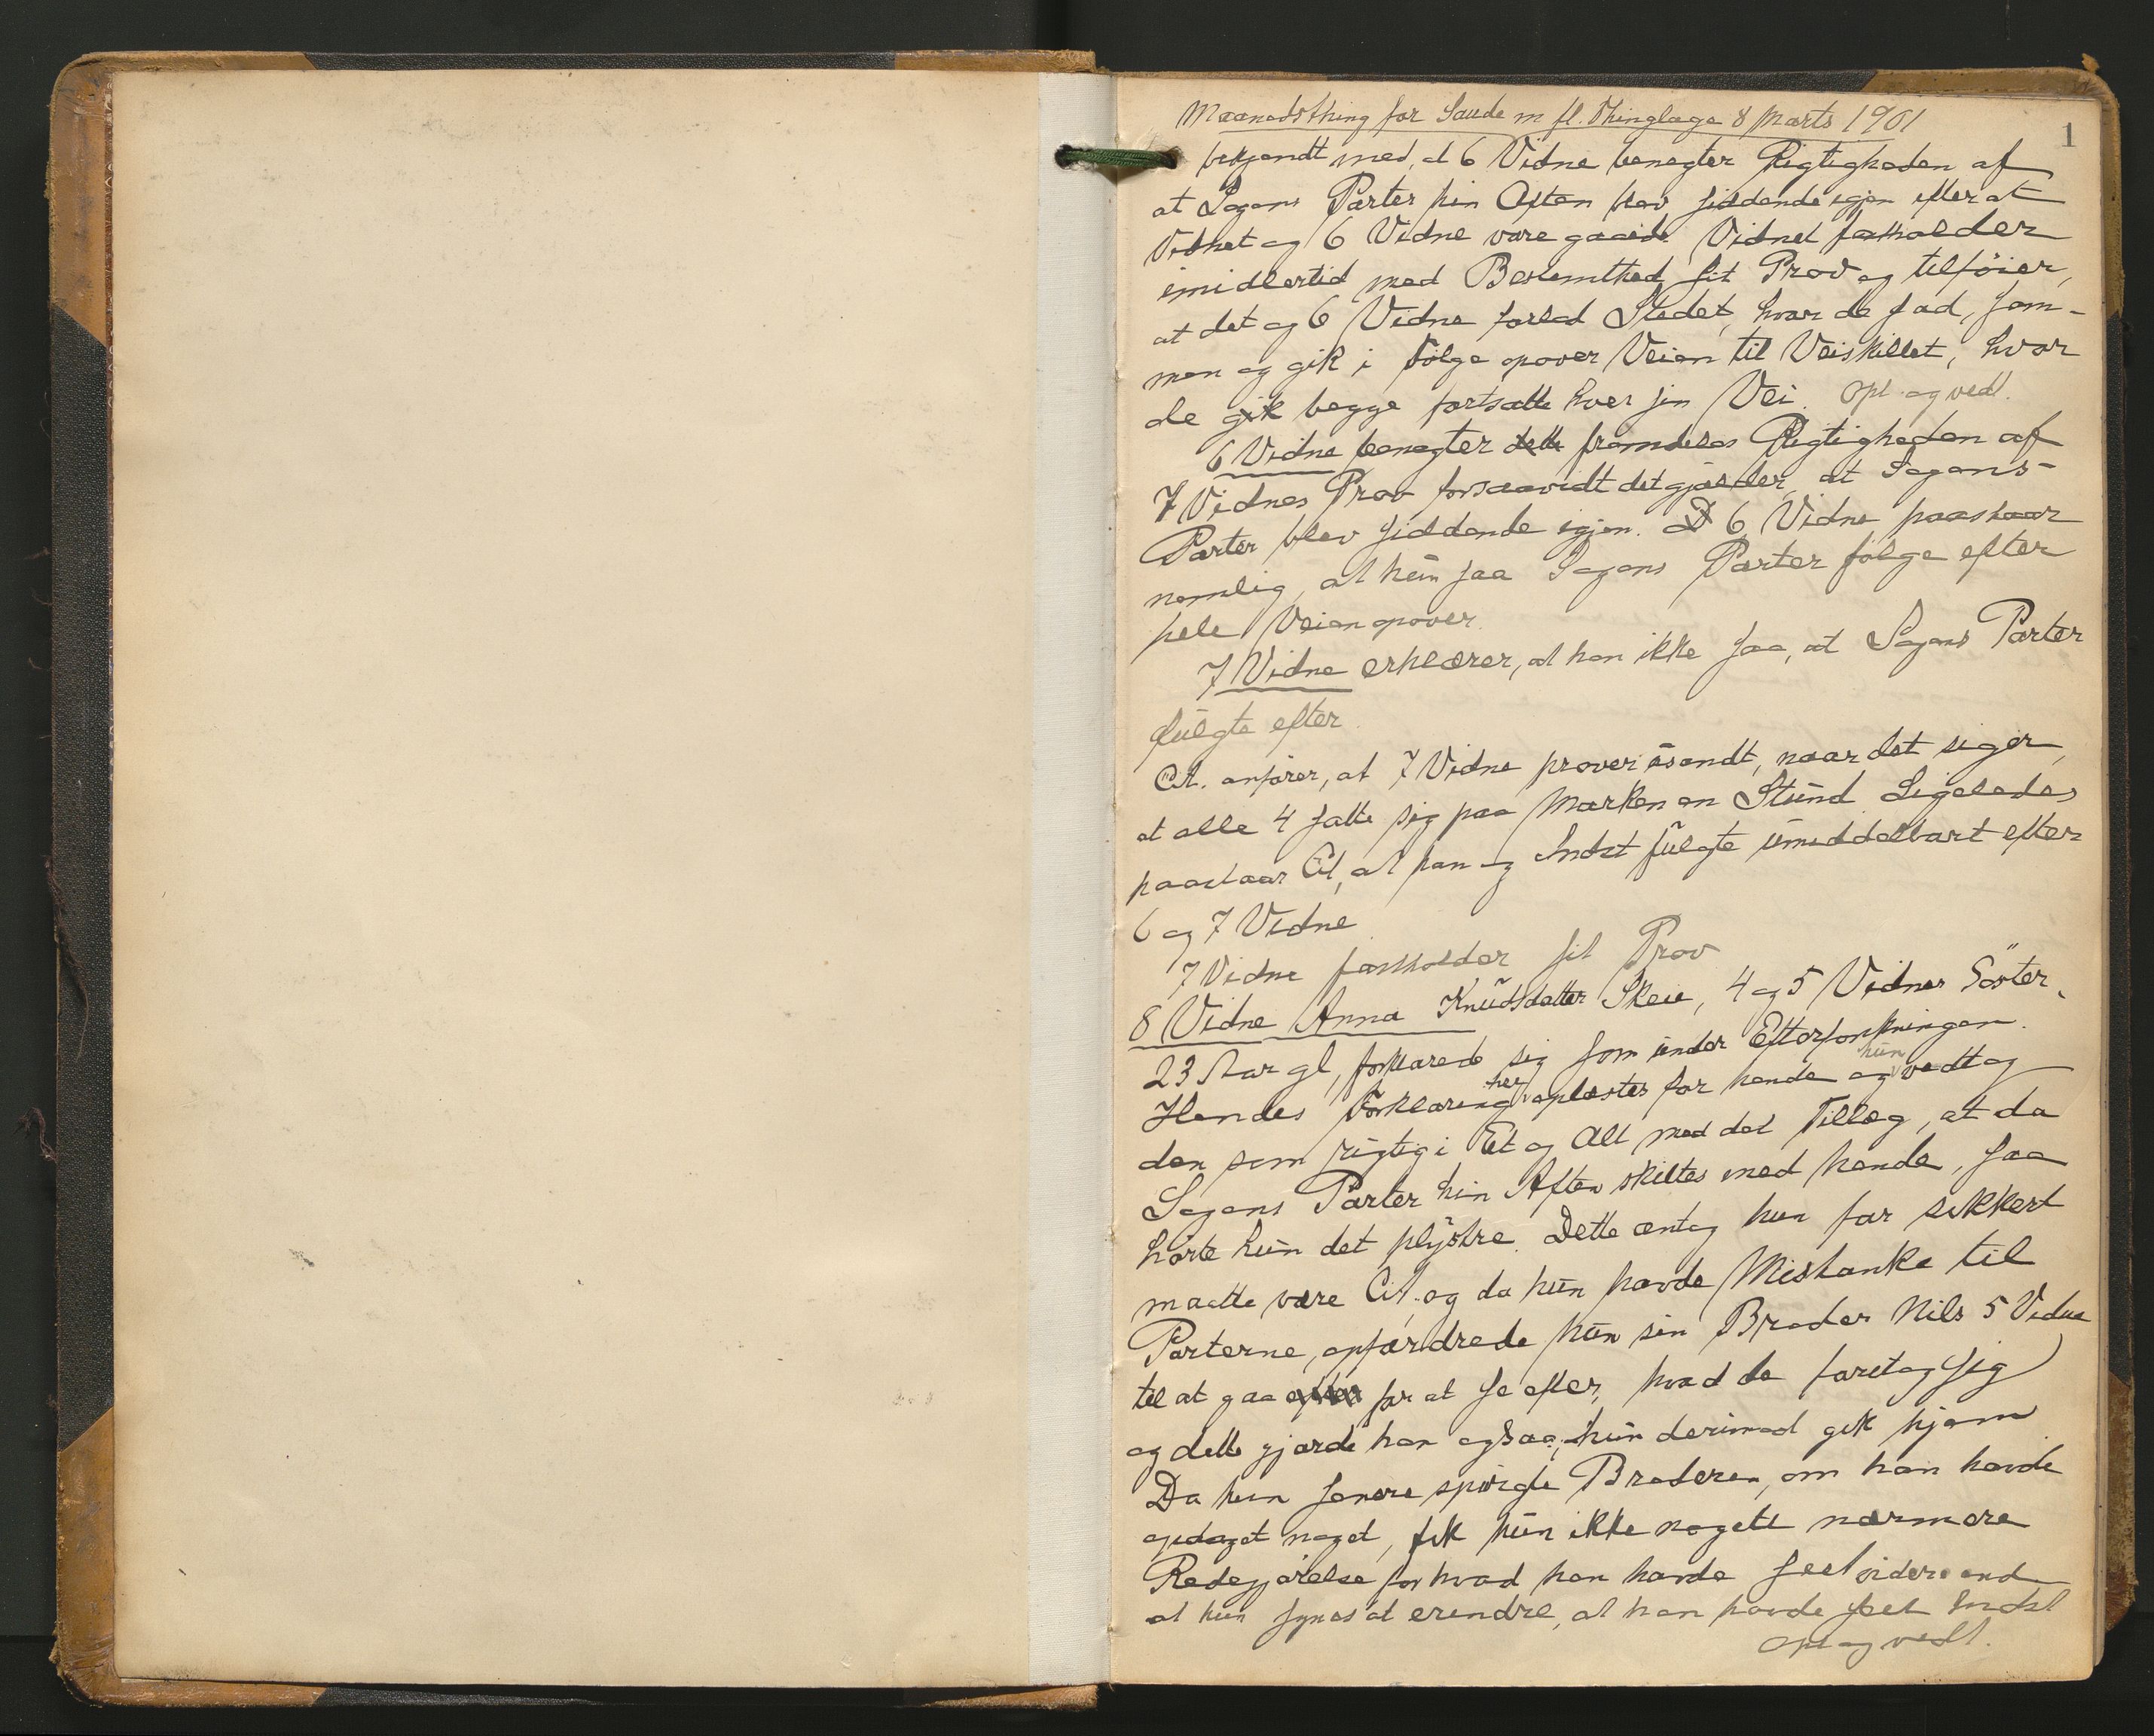 Maanedsthing for Saude m fl. Thinglage 8 Marts 1901
1
bekjendt med, at 6 Vidne benegter Rigtigheden af
at Sagens Parter hin Aften blev siddende igjen efter at
Vidnet og 6 Vidne vare gaaede. Vidnet fastholder
imidlertid med Bestemthed sit Prov og tilføier,
at det og 6 Vidne forlod Stedet, hvor de sad, sam-
men og gik i Følge opover Veien til Veiskillet, hvor
de gik begge fortsatte hver sin Vei. Opl og vedt.
6 Vidne benegter dette fremdeles Rigtigheden af
7 Vidnes Prov forsaavidt det gjælder, at Sagens
Parter blev siddende igjen. D 6 Vidne paastaar
nemlig, at hun saa Sagens Parter følge efter
hele Veien opover.
7 Vidne erklærer, at han ikke saa, at Sagens Parter
fulgte efter.
Cit. anfører, at 7 Vidne prover usandt, naar det siger,
at alle 4 satte sig paa Marken en Stund. Ligeledes
paastaar Cit, at han og Indst fulgte umiddelbart efter
6 og 7 Vidne
7 Vidne fastholder sit Prov
8 Vidne Anna Knudsdatter Skeie, 4 og 5 Vidnes Søster,
23 Aar gl, forklarede sig som under Efterforskningen.
Hendes Forklaring her oplæstes for hende og hun vedtog
den som rigtig i Et og Alt med det Tillæg, at da
Sagens Parter hin Aften skiltes med hende, saa
hørte hun det plystre. Dette antog hun for sikkert
maatte være Cit. og da hun havde Mistanke til
Parterne, opfordrede hun sin Broder Nils 5 Vidne
til at gaa efter for at se efter, hvad de foretog sig
og dette gjorde han ogsaa, hun derimod gik hjem
Da hun senere spurgte Broderen, om han havde
opdaget noget, fik hun ikke nogett nærmere
Redegjørelse for hvad han havde seet videre end
at hun synes at erindre, at han havde seet Indst
opl og vedt.